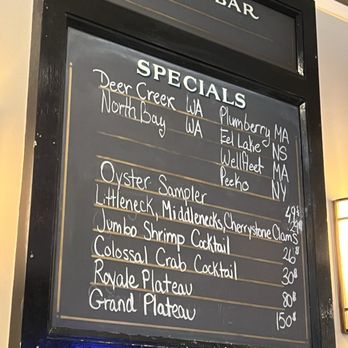 BAR
SPECIALS
Deer Creek WA Plumberry MA
North Bay WA Eel Lake NS
Wellfleet MA
Peeko NY
Oyster Sampler 49
Littleneck, Middlenecks, Cherrystone Clams
Jumbo Shrimp Cocktail 26
Colossal Crab Cocktail 30
Royale Plateau 80
Grand Plateau 150